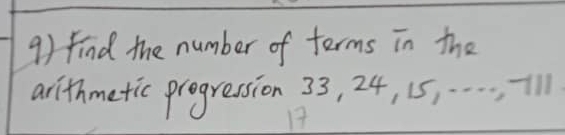 9) Find the number of terms in the
arithmetic progression 33, 24, 15, ----, -111.
17